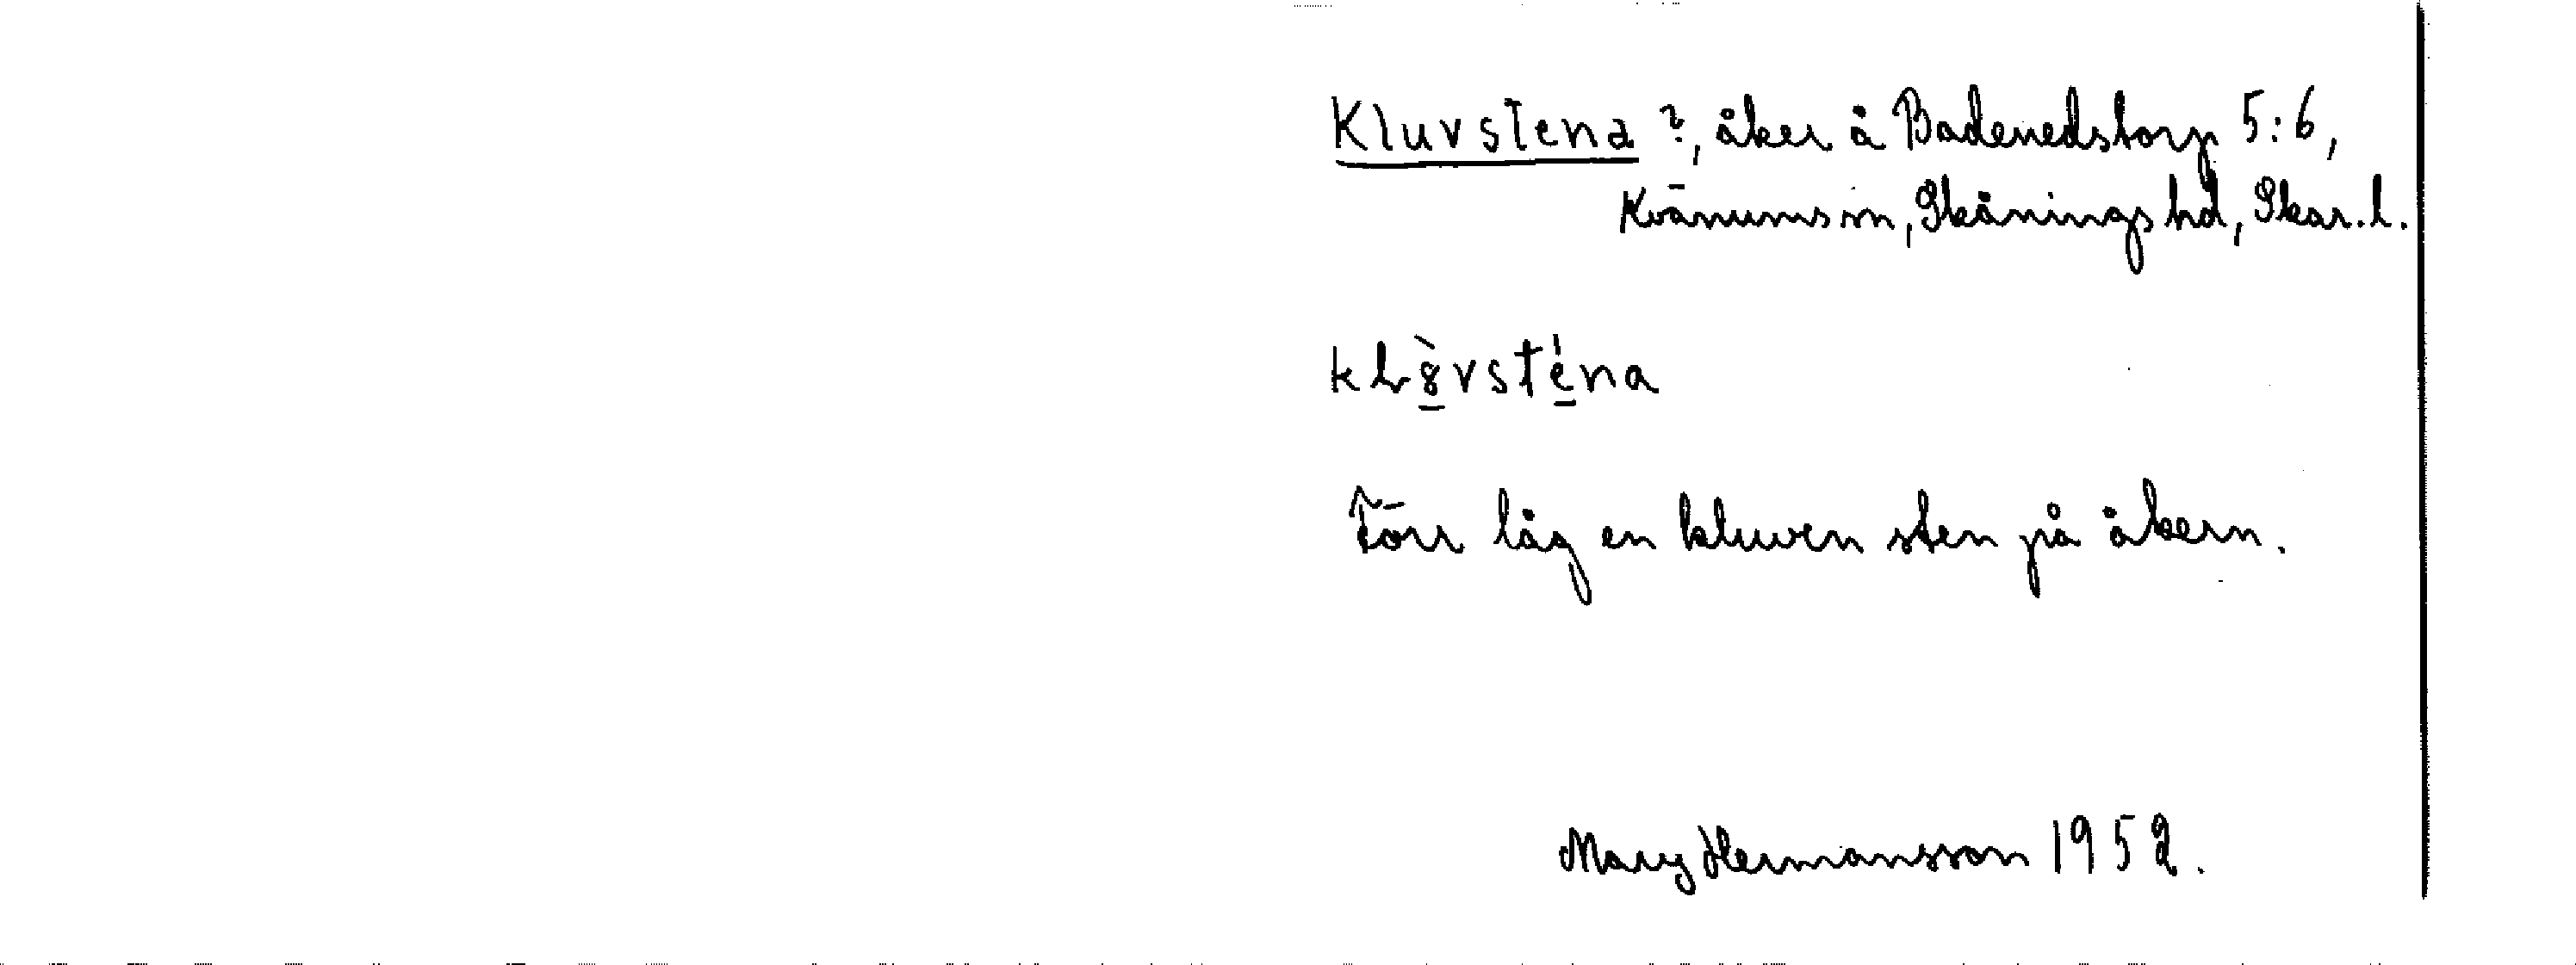 Kluvstena ?, åker å Badenedstorp 5:6,
Kvänums sn, Skånings hd, Skar. l.
kḷ8̱̀vsté̱na
Förr låg en kluven sten på åkern.
Mary Hermansson 1952.